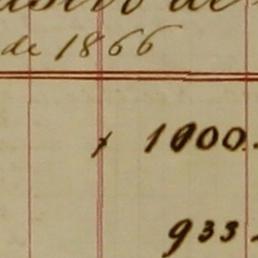 de 1866
1000.
933.